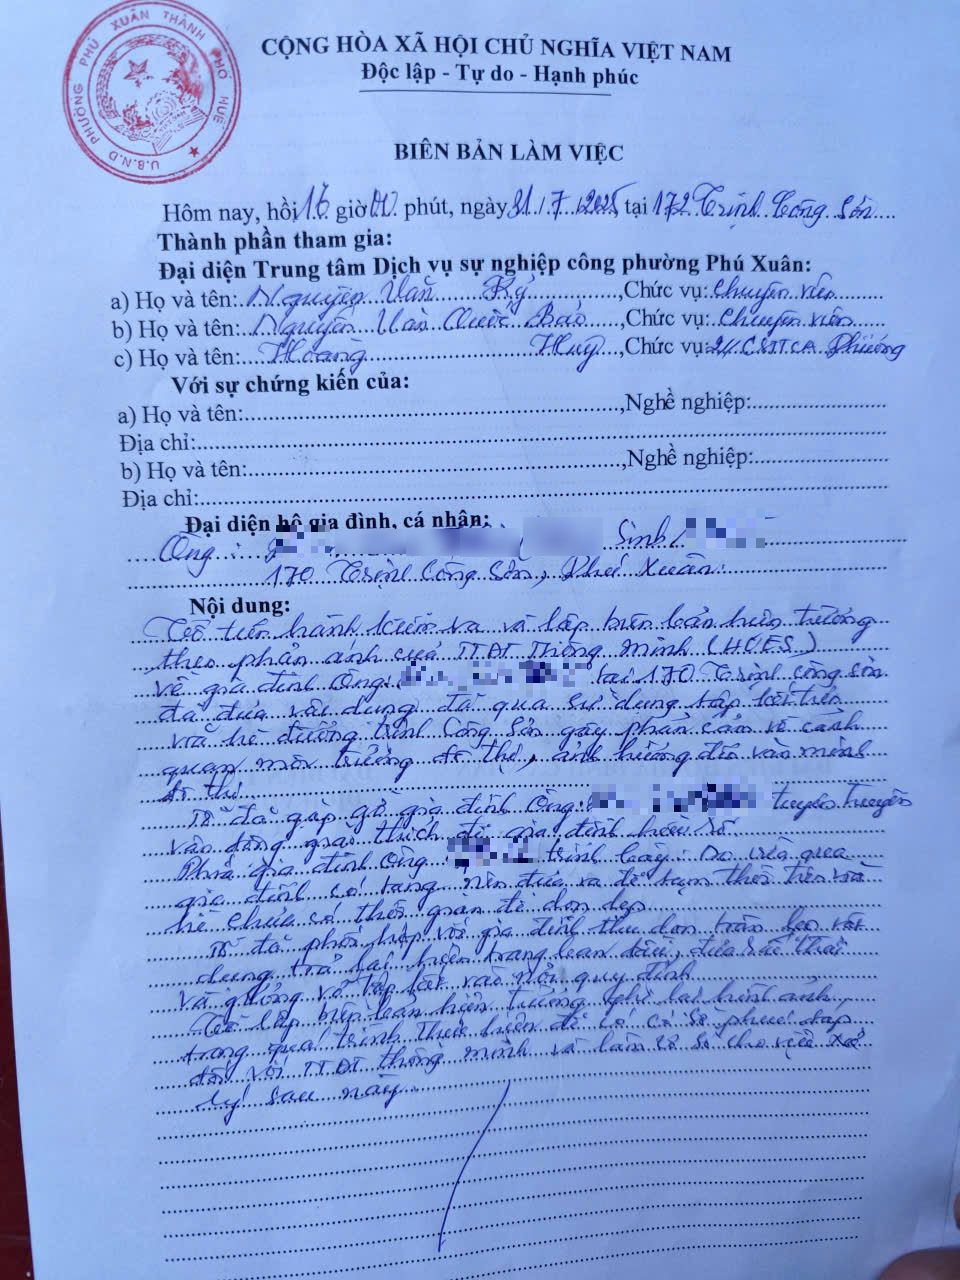 U.B.N.D PHƯỜNG PHÚ XUÂN THÀNH PHỐ HUẾ
CỘNG HÒA XÃ HỘI CHỦ NGHĨA VIỆT NAM
Độc lập - Tự do - Hạnh phúc
BIÊN BẢN LÀM VIỆC
Hôm nay, hồi 16 giờ 00 phút, ngày 31/7/2025 tại 172 Trịnh Công Sơn
Thành phần tham gia:
Đại diện Trung tâm Dịch vụ sự nghiệp công phường Phú Xuân:
a) Họ và tên: Nguyễn Văn Kỷ, Chức vụ: Chuyên viên
b) Họ và tên: Nguyễn Văn Quốc Bảo, Chức vụ: Chuyên viên
c) Họ và tên: Hoàng Huy, Chức vụ: CSTT CA Phường
Với sự chứng kiến của:
a) Họ và tên:, Nghề nghiệp:
Địa chỉ:
b) Họ và tên:, Nghề nghiệp:
Địa chỉ:
Đại diện hộ gia đình, cá nhân:
Ông: Sinh
170 Trịnh Công Sơn, Phú Xuân
Nội dung:
Tổ tiến hành kiểm tra và lập biên bản hiện trường
theo phản ánh của TTĐT Thông minh (HUES)
về gia đình Ông: tại 170 Trịnh Công Sơn
đã đưa vật dụng đã qua sử dụng tập kết trên
vỉa hè đường Trịnh Công Sơn gây phản cảm về cảnh
quan môi trường đô thị, ảnh hưởng đến văn minh
đô thị
Tổ đã gặp gỡ gia đình Ông: tuyên truyền
vận động giải thích để gia đình hiểu rõ
Phía gia đình Ông trình bày: Do vừa qua
gia đình có tang nên đưa ra để tạm thời trên vỉa
hè chưa có thời gian để dọn dẹp
Tổ đã phối hợp với gia đình thu dọn toàn bộ vật
dụng trả lại hiện trạng ban đầu, đưa rác thải
và giường vỡ tập kết vào nơi quy định
Tổ lập biên bản hiện trường ghi lại hình ảnh
trong quá trình thực hiện để có cơ sở phúc đáp
đối với TTĐT thông minh và làm cơ sở cho việc xử
lý sau này